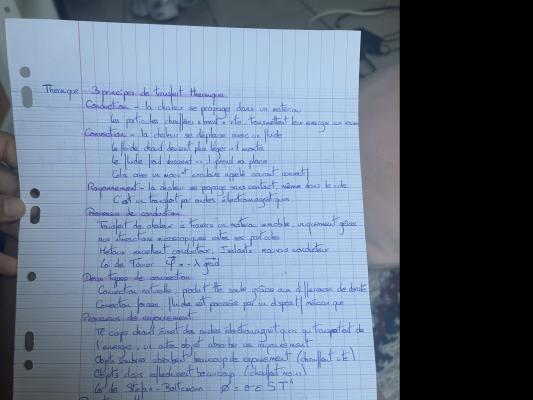 Thermique 3 principes de transfert thermique
Conduction - la chaleur se propage dans un matériau
Les particules chauffées vibrent + vite, transmettent leur énergie aux voisines
Convection - la chaleur se déplace avec un fluide
Le fluide chaud devient plus léger → il monte
Le fluide froid descend → il prend sa place
Cela crée un mouvt circulaire appelé courant convectif
Rayonnement - la chaleur se propage sans contact, même dans le vide
C'est un transport par ondes électromagnétiques
Processus de conduction
Transfert de chaleur à travers un matériau immobile, uniquement grâce
aux interactions microscopiques entre ses particules
Métaux excellent conducteur, Isolants mauvais conducteur
Loi de Fourier φ = - λ grad
Deux types de convection
Convection naturelle produit tte seule grâce aux différences de densité
Convection forcée fluide est poussé par un dispositif mécanique
Processus de rayonnement
Tt corps chaud émet des ondes électromagnétiques qui transportent de
l'énergie, un autre objet absorbe ce rayonnement
Objets sombres absorbent beaucoup de rayonnement (chauffent vite)
Objets clairs réfléchissent beaucoup (chauffent moins)
Loi de Stefan - Boltzmann Φ = σ ε S T⁴